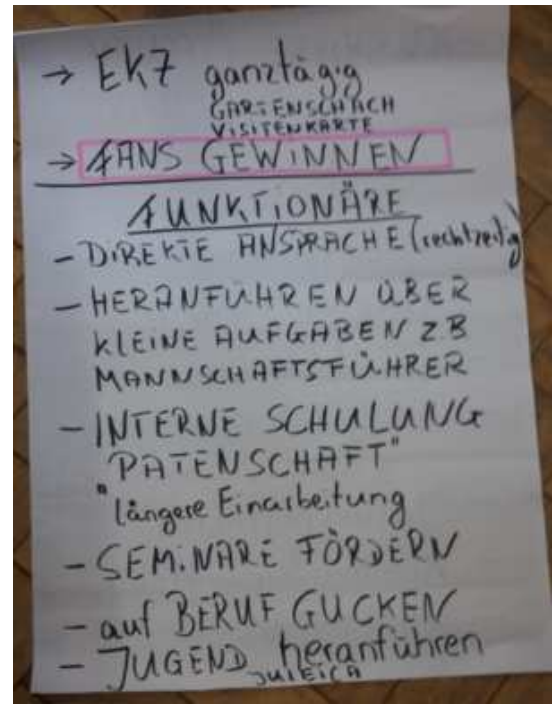 → EKZ ganztägig
GARTENSCHACH
VISITENKARTE
→ FANS GEWINNEN
FUNKTIONÄRE
- DIREKTE ANSPRACHE (rechtzeitig)
- HERANFÜHREN ÜBER
KLEINE AUFGABEN ZB
MANNSCHAFTSFÜHRER
- INTERNE SCHULUNG
"PATENSCHAFT"
"längere Einarbeitung
- SEMINARE FÖRDERN
- auf BERUF GUCKEN
- JUGEND heranführen
JULEICA